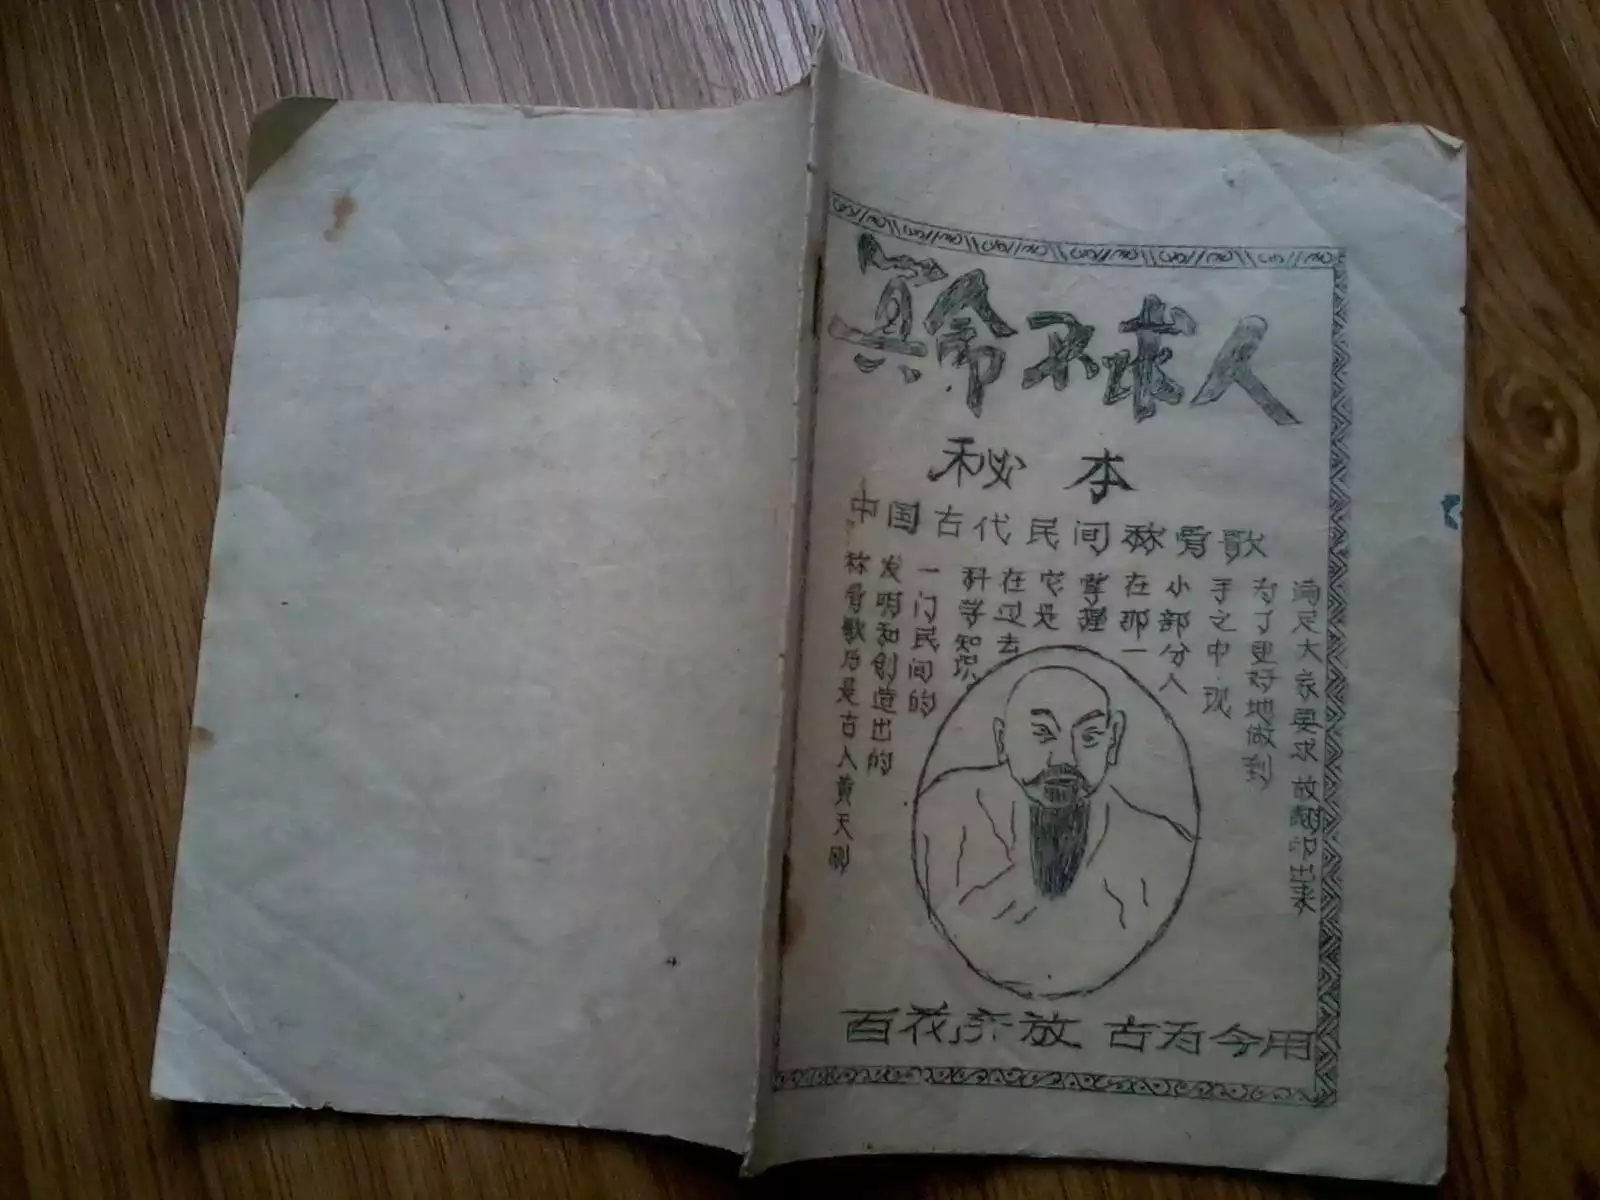 算命不求人
秘本
中国古代民间称骨歌
称骨歌乃是古人黄天刚
发明和创造出的
一门民间的
科学知识
在过去
它是
掌握
在那一
小部分人
手之中.现
为了更好地做到
满足大家要求故翻印出来
百花齐放 古为今用